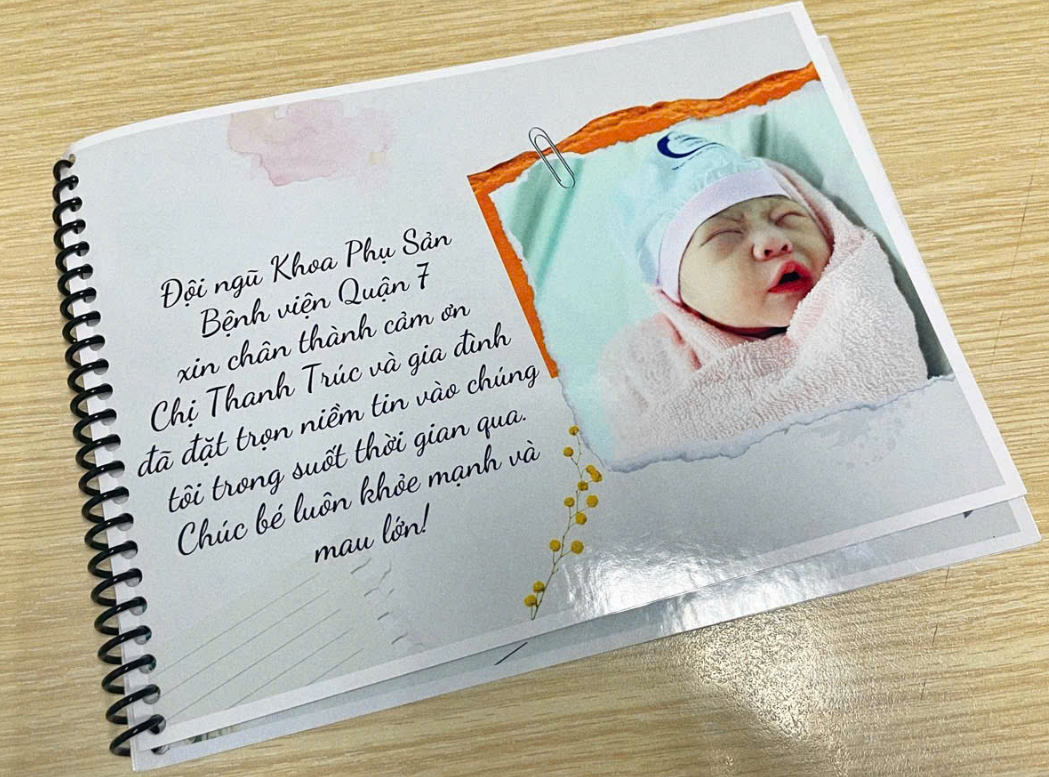 Đội ngũ Khoa Phụ Sản
Bệnh viện Quận 7
xin chân thành cảm ơn
Chị Thanh Trúc và gia đình
đã đặt trọn niềm tin vào chúng
tôi trong suốt thời gian qua.
Chúc bé luôn khỏe mạnh và
mau lớn!